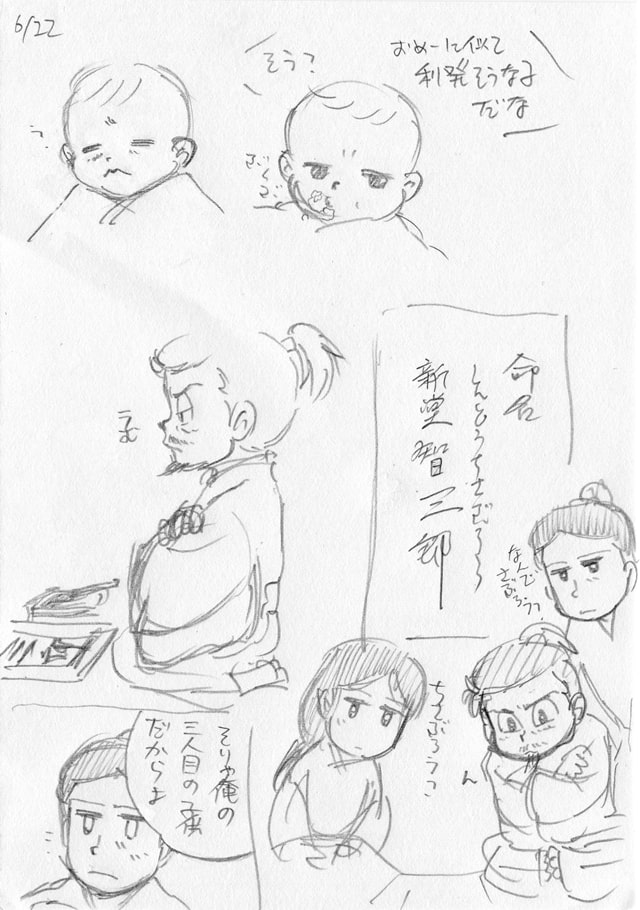 6/22
おめーに似て
利発そうな子
だな
そう?
う?
ぶくぶ
うむ
命名
しんどうちさぶろう
新堂智三郎
なんで
さぶろう?
ちさぶろう?
ん
そりゃ俺の
三人目の子供
だからよ